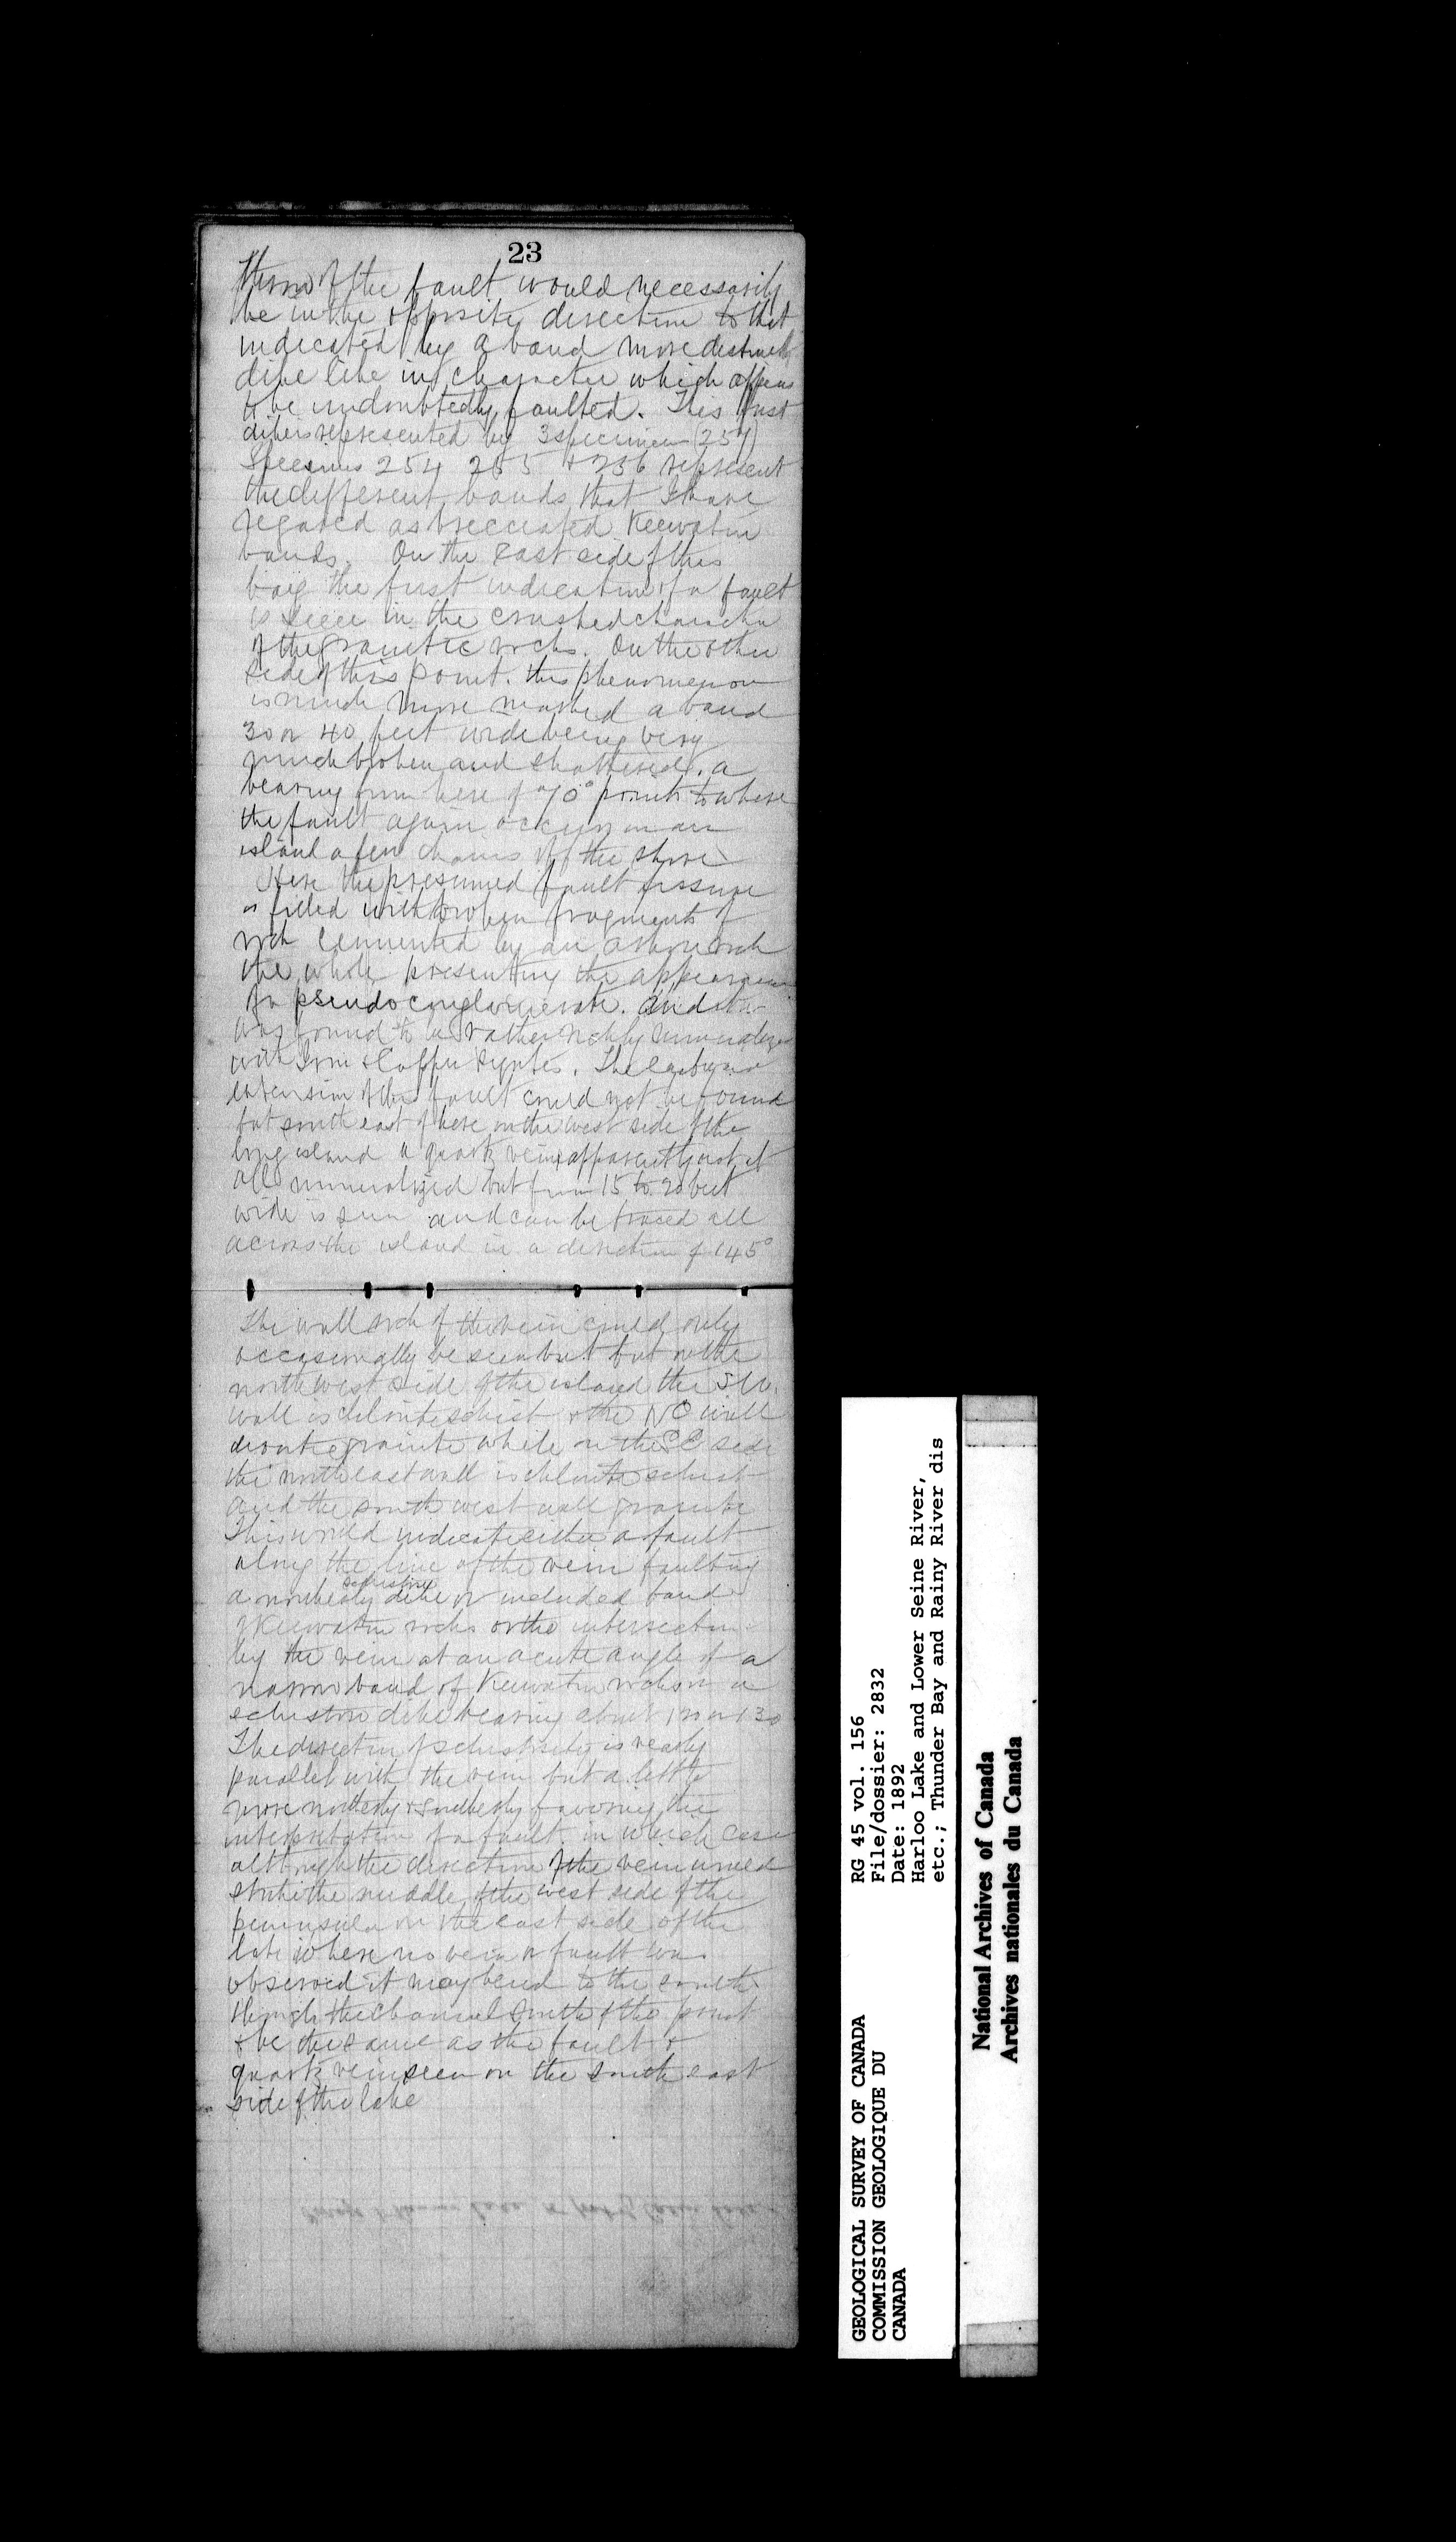 23
throw of the fault would necessarily
be in the opposite direction to that
indicated by a band more distinctly
dike like in character which appears
to be undoubtedly faulted. This just
dike is represented by 3 specimens (257)
Specimens 254 255 & 256 represent
the different bands that I have
regared as brecciated Keewatin
bands. On the East side of this
bay the first indication of a fault
is seen in the crushed character
of the granitic rocks. On the other
side of this point. this phenomenon
is much more marked a band
30 or 40 feet wide being very
much broken and shattered. a
bearing from here of 70° points to where
the fault again occurs on an
island a few chains off the shore
Here the presumed fault fissure
is filled with broken fragments of
rock cemented by an
the whole presenting the appearance
of a pseudo conglomerate. and
was found to be rather richly mineralized
with Iron & Copper Pyrites. The eastward
extension of this fault could not be found
but south east of here on the west side of the
long island a quartz vein apparently not at
all mineralized but from 15 to 20 feet
wide is seen and can be traced all
across the island in a direction of 145°
The wall rock of the vein could only
occasionally be seen but but on the
north west side of the island the S.W.
wall is chlorite schist & the NE wall
granite while on the SE side
the north east wall is chlorite schist
and the south west wall granite
This would indicate either a fault
along the line of the vein faulting
a northerly schistose dike or included band
of Keewatin rocks or the intersection
by the vein at an acute angle of a
narrow band of Keewatin rocks or a
schistose dike bearing about 120 or 130
The direction of schistosity is nearly
parallel with the vein but a little
more northerly & southerly favoring the
interpretation of a fault. in which case
although the direction of the vein would
strike the middle of the west side of the
peninsula on the east side of the
lake where no vein or fault was
observed it may bend to the south
through the channel south of the point
& be the same as the fault &
quartz vein seen on the south east
side of the lake
GEOLOGICAL SURVEY OF CANADA
COMMISSION GEOLOGIQUE DU
CANADA
RG 45 vol. 156
File/dossier: 2832
Date: 1892
Harloo Lake and Lower Seine River,
etc.; Thunder Bay and Rainy River dis
National Archives of Canada
Archives nationales du Canada